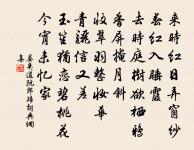 来時紅日弄窗紗
春紅入睡霞
去時庭樹欲栖鴉
香屏掩月斜
收翠羽整妝華
青驪信又差
玉笙猶戀碧桃花
今宵未憶家
晏幾道阮郎歸詞典網
集